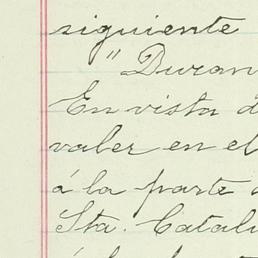 siguiente
" Duran
En vista d
valer en el
á la parte
Sta. Catali